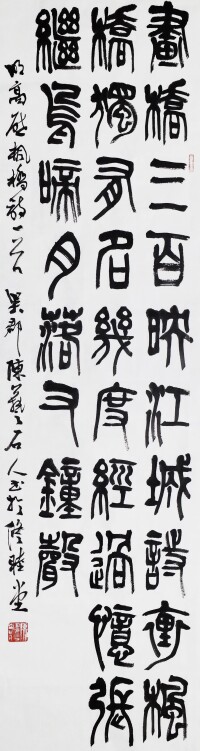 畫橋三百映江城詩裏楓
橋獨有名幾度經過憶張
繼烏啼月落又鐘聲
明高啟楓橋詩一首 吳郡陳藝石人書於脩睦堂